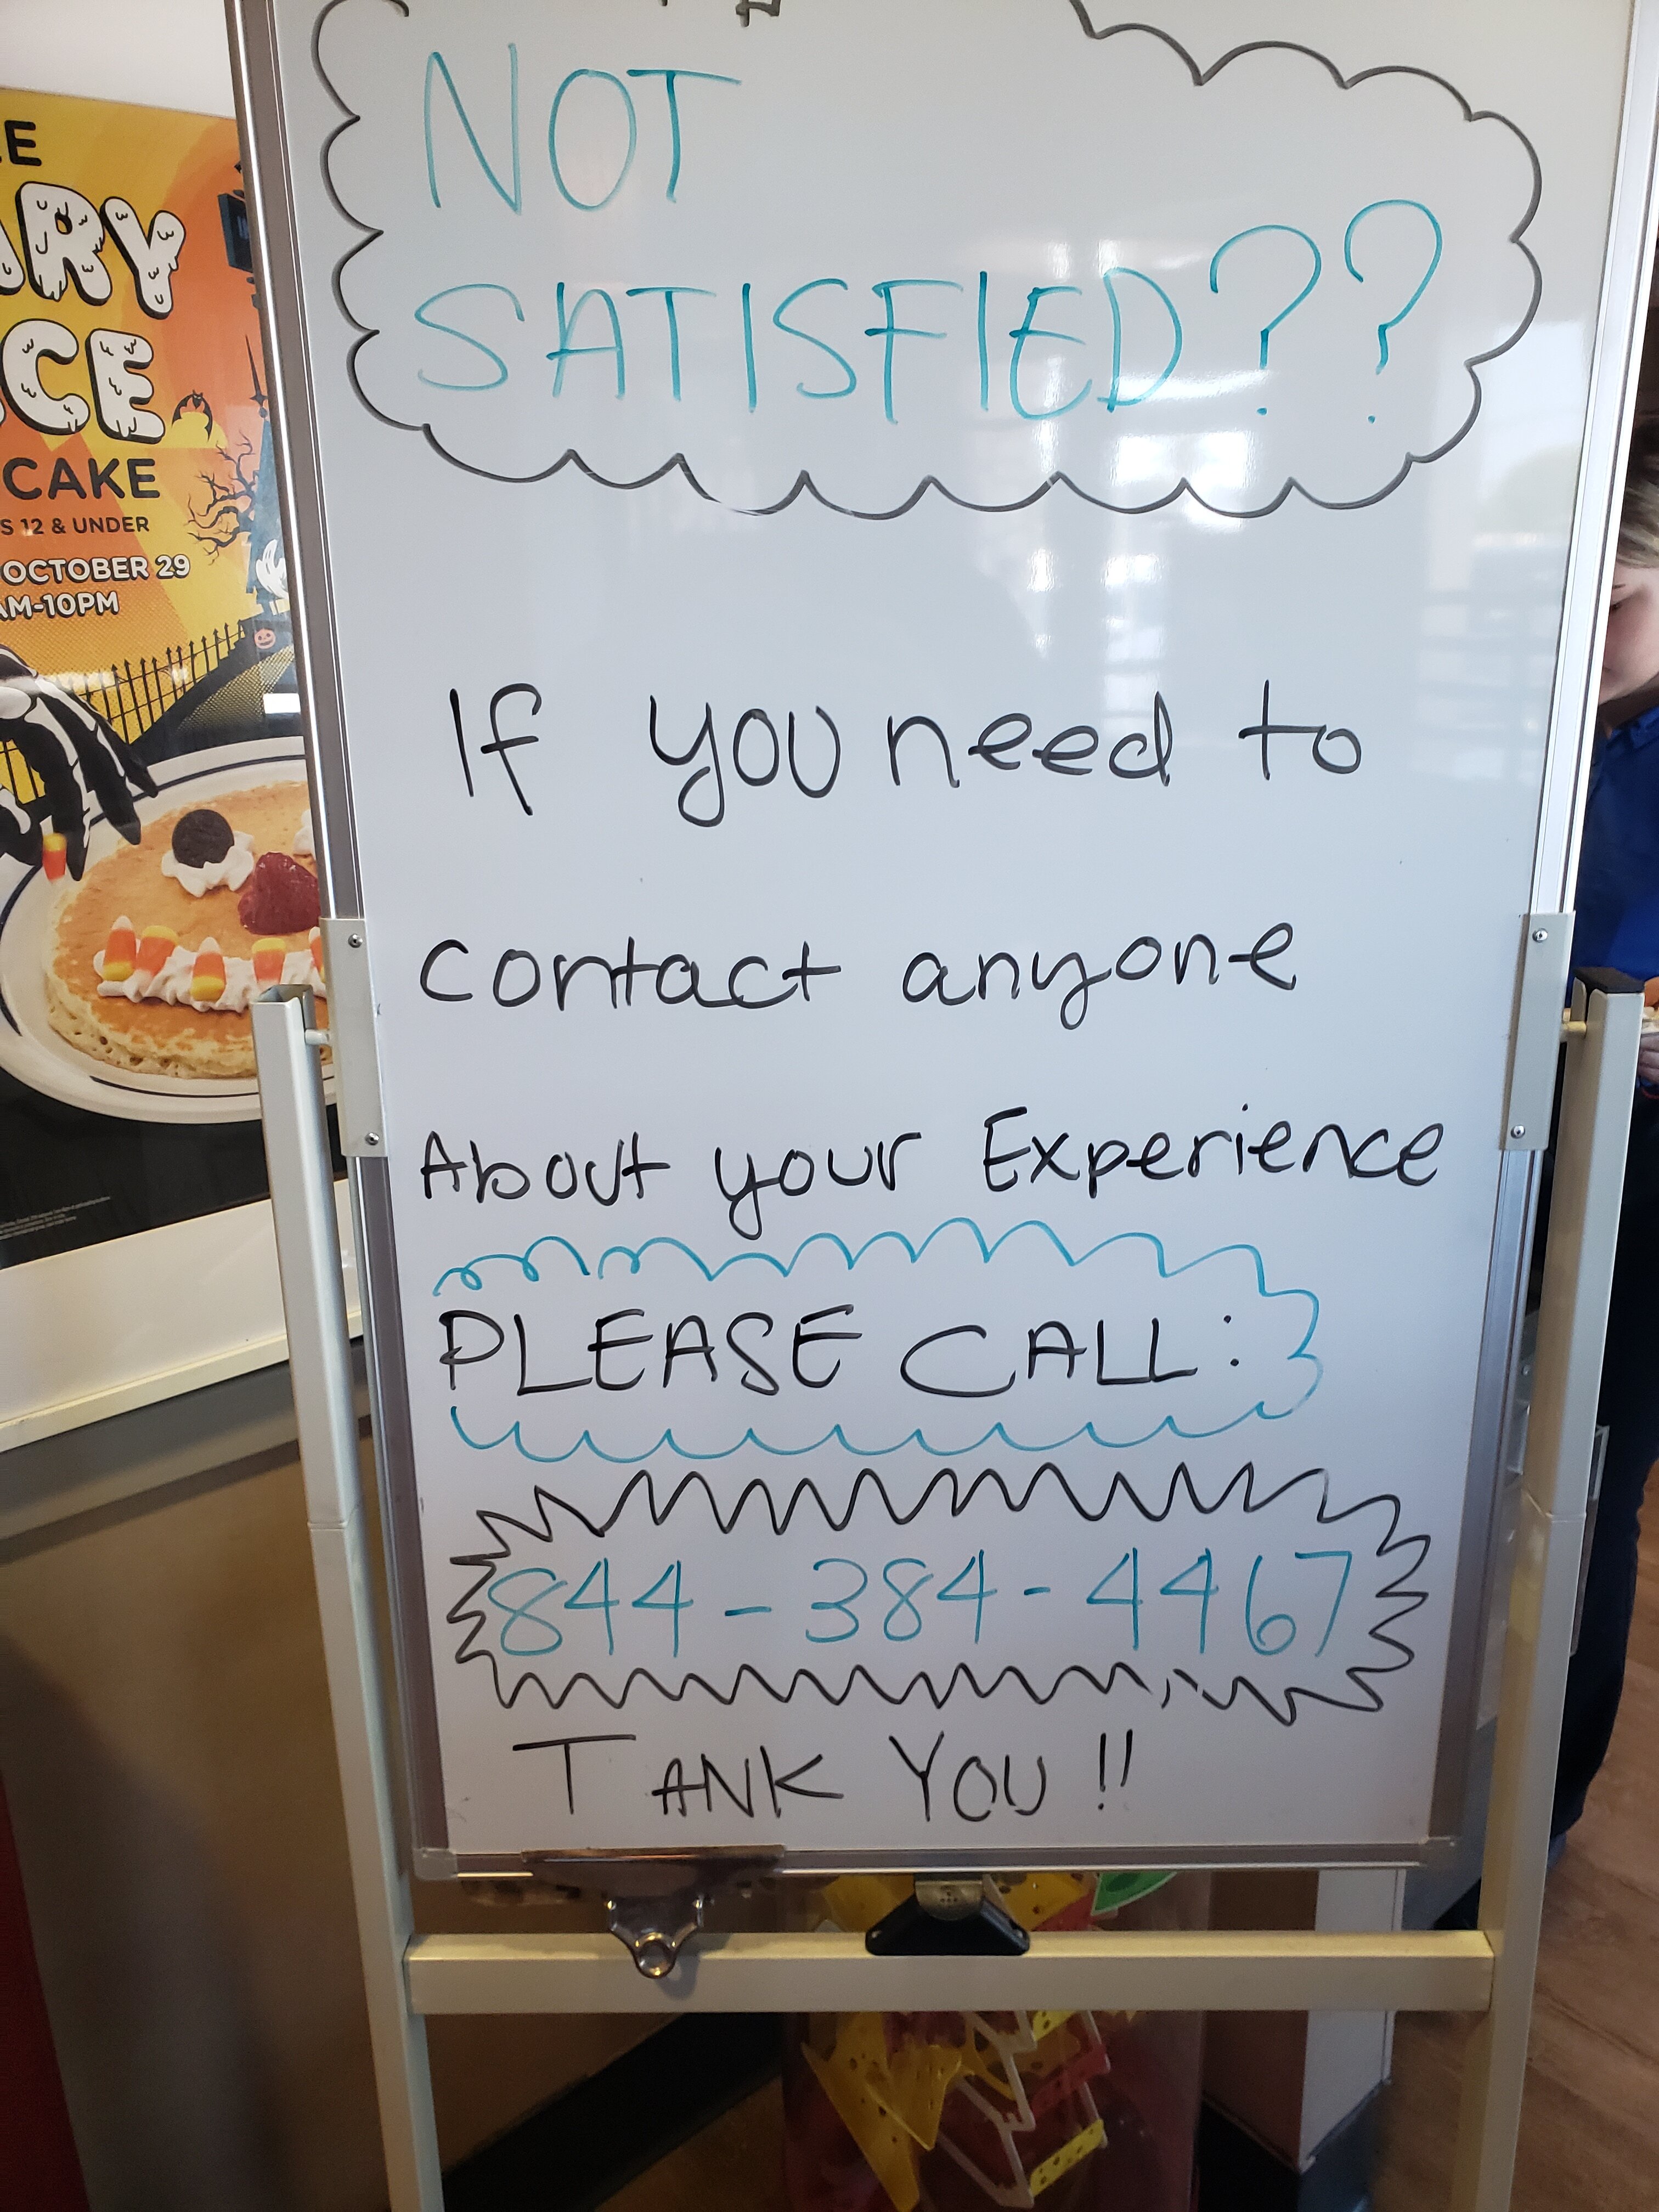 NOT
SATISFIED??
If you need to
contact anyone
About your Experience
PLEASE CALL:
844-384-4467
TANK YOU!!
CAKE
12 & UNDER
OCTOBER 29
AM-10PM